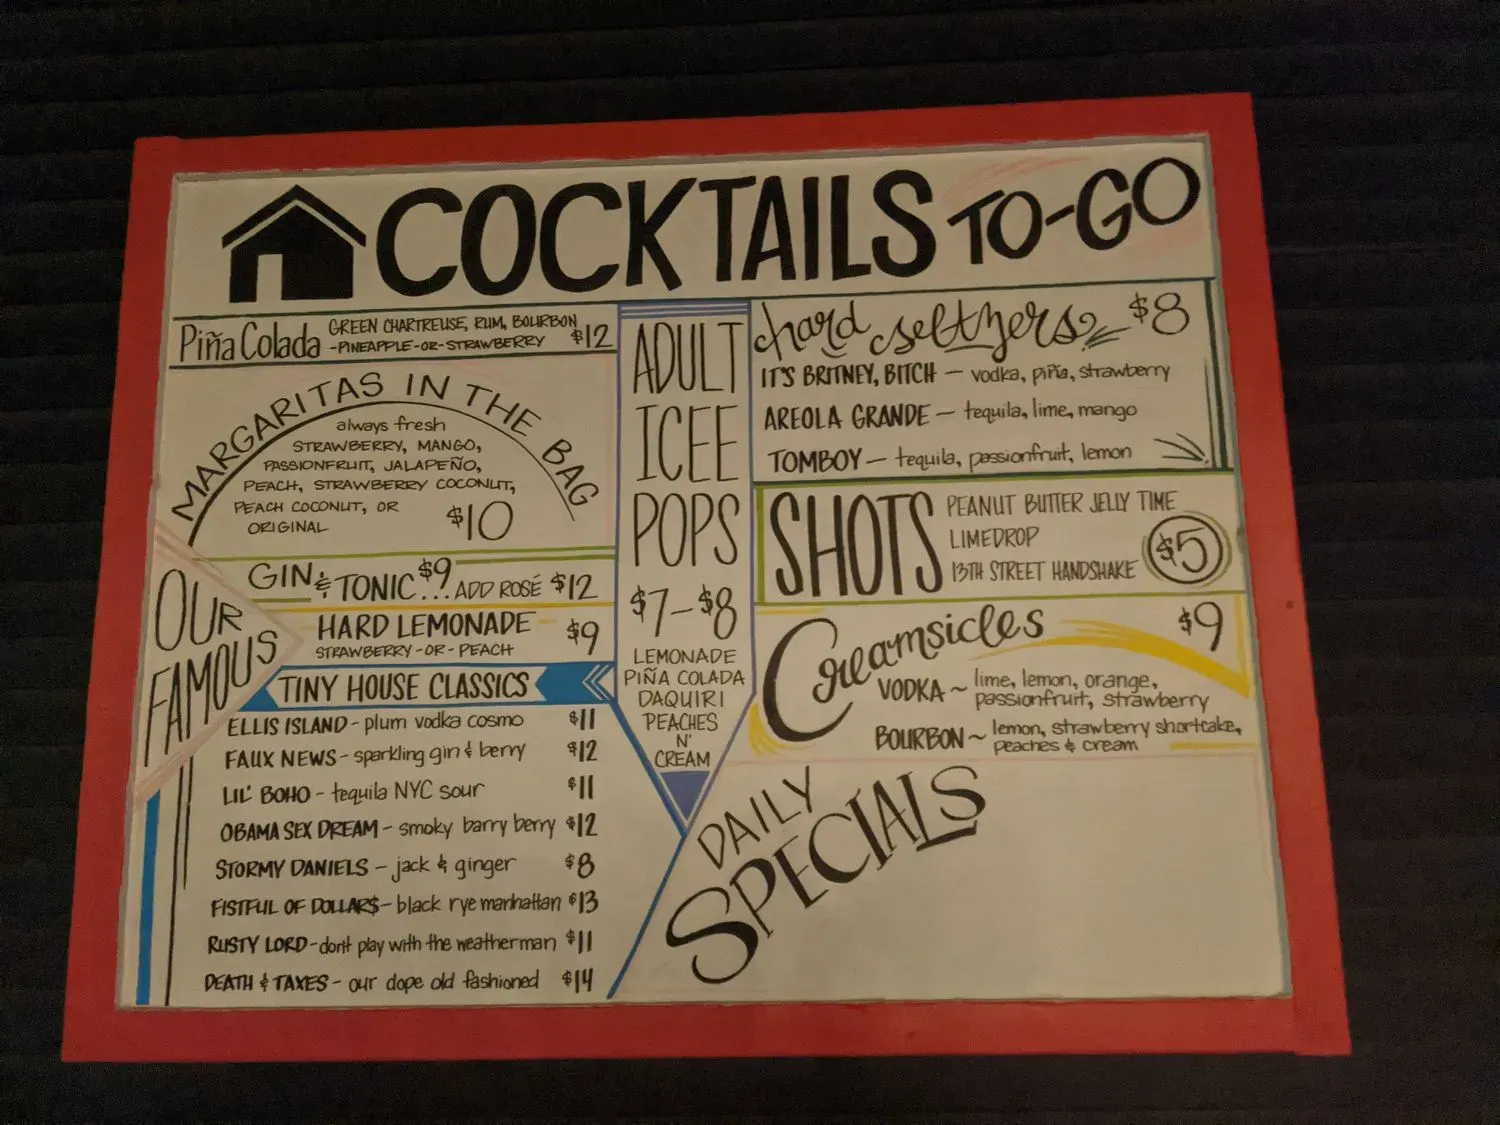 COCKTAILS TO-GO
Piña Colada GREEN CHARTREUSE, RUM, BOURBON
-PINEAPPLE-OR-STRAWBERRY $12
MARGARITAS IN THE BAG
always fresh
STRAWBERRY, MANGO,
PASSIONFRUIT, JALAPEÑO,
PEACH, STRAWBERRY COCONUT,
PEACH COCONUT, OR
ORIGINAL $10
OUR
FAMOUS
GIN & TONIC $9 ... ADD ROSÉ $12
HARD LEMONADE $9
STRAWBERRY-OR-PEACH
TINY HOUSE CLASSICS
ELLIS ISLAND - plum vodka cosmo $11
FAUX NEWS - sparkling gin & berry $12
LIL' BOHO - tequila NYC sour $11
OBAMA SEX DREAM - smoky barry berry $12
STORMY DANIELS - jack & ginger $8
FISTFUL OF DOLLAR$ - black rye manhattan $13
RUSTY LORD - don't play with the weatherman $11
DEATH & TAXES - our dope old fashioned $14
ADULT
ICEE
POPS
$7-$8
LEMONADE
PIÑA COLADA
DAQUIRI
PEACHES
N'
CREAM
hard seltzers $8
IT'S BRITNEY, BITCH - vodka, piña, strawberry
AREOLA GRANDE - tequila, lime, mango
TOMBOY - tequila, passionfruit, lemon
SHOTS
PEANUT BUTTER JELLY TIME
LIMEDROP
13TH STREET HANDSHAKE
$5
Creamsicles $9
VODKA ~ lime, lemon, orange,
passionfruit, strawberry
BOURBON ~ lemon, strawberry shortcake,
peaches & cream
DAILY
SPECIALS